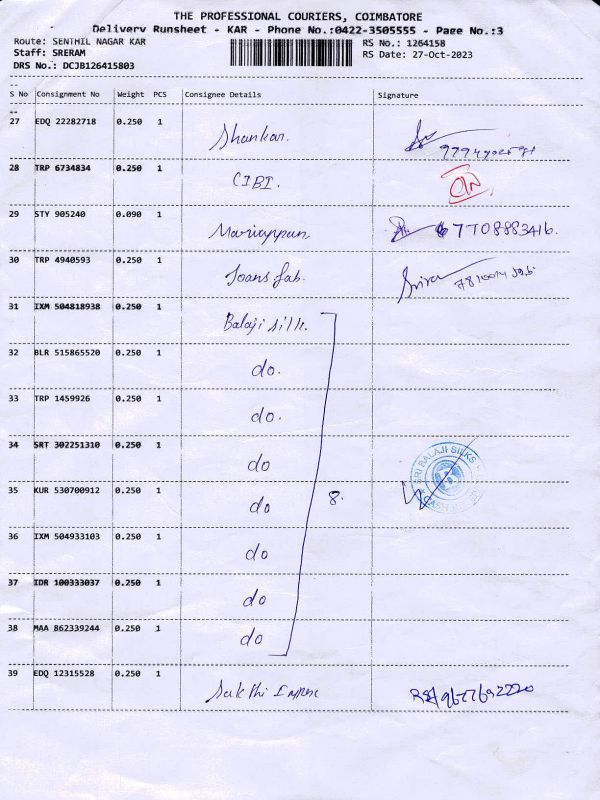 THE PROFESSIONAL COURIERS, COIMBATORE
Delivery Runsheet - KAR - Phone No.:0422-3505555 - Page No.:3
Route: SENTHIL NAGAR KAR RS No.: 1264158
Staff: SRERAM RS Date: 27-Oct-2023
DRS No.: DCJB126415803
S No Consignment No Weight PCS Consignee Details Signature
27 EDQ 22282718 0.250 1 Shankar.
28 TRP 6734834 0.250 1 CIBI.
29 STY 905240 0.090 1 Mariappan 7708883416.
30 TRP 4940593 0.250 1
31 IXM 504818938 0.250 1 Balaji silk.
32 BLR 515865520 0.250 1 do.
33 TRP 1459926 0.250 1 do.
34 SRT 302251310 0.250 1 do
SRI BALAJI SILKS
35 KUR 530700912 0.250 1 do 8.
36 IXM 504933103 0.250 1 do
37 IDR 100333037 0.250 1 do
38 MAA 862339244 0.250 1 do
39 EDQ 12315528 0.250 1 Sakthi 9677692220